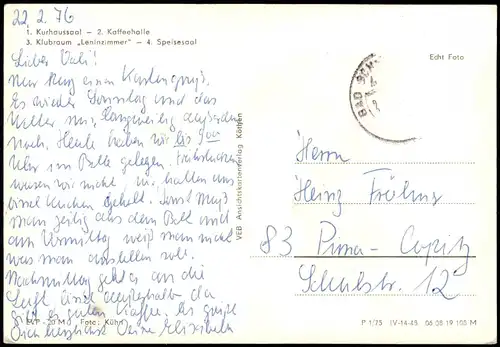 22.2.76
1. Kurhaussaal – 2. Kaffeehalle
3. Klubraum „Leninzimmer" – 4. Speisesaal
Lieber Vati!
Nur kurz einen Kartengruß.
Es wieder Sonntag und das
Wetter mies, langweilig außerdem
noch. Heute haben wir bis 9 00
Uhr im Bett gelegen. Frühstücken
waren wir nicht, u. hatten uns
Kuchen geholt. Sonst muß
man zeitig aus dem Bett und
am Vormittag weiß man nicht
was man anstellen soll.
Nachmittag geht es an die
Luft und außerhalb, da
gibt es guten Kaffee. Es grüßt
Dich herzlichst Deine Elisabeth
BVP - 20 M Foto: Kühn
VEB Ansichtskartenverlag Köthen
Echt Foto
BAD
Herrn
Heinz
83 Pirna-Copitz
Schulstr. 12
P 1/75 IV-14-45 06 08 19 108 M